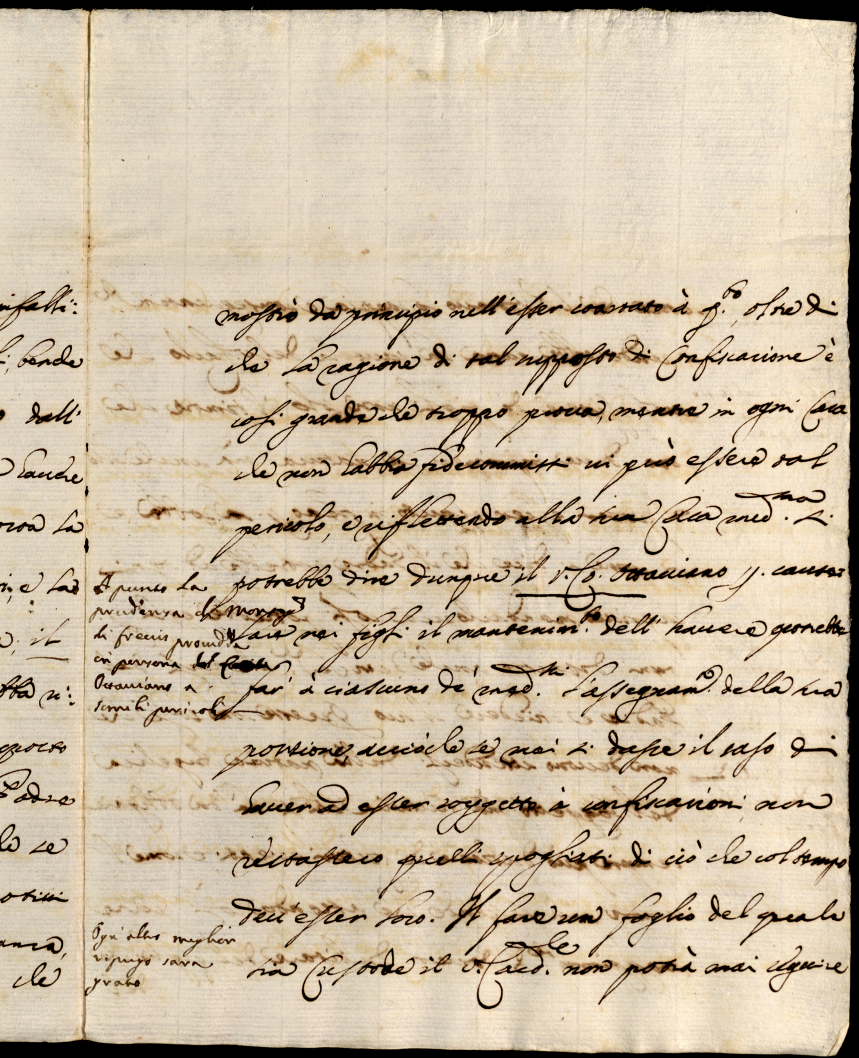 mostrò da principio nell'esser contrario à q.to, oltre di
che la ragione di tal supposto di Confiscazione è
così grande che troppo prova, mentre in ogni Casa
che non habbia fidecommissi vi può essere tal
pericolo, e riflettendo alla sua Casa med.ma si
potrebbe dire dunque il S. Co. Ottaviano p. causa:
lare nei figli il mantenim.to dell'havere potrebbe
far' à ciascuno de' med.mi l'assegnam.to della sua
portione acciò che se mai si dasse il caso di
haver ad esser soggetto à confiscazioni non
restassero quelli spogliati di ciò che col tempo
deve esser loro. Il fare un foglio del quale
sia Custode il S. Card.le non potrà mai
A punto la
prudenza di Mons.r
di
in persona del
Ottaviano a
simili pericoli
Ogn'altro miglior
ripiego sara
grato
dall'
havere
la
e la
il
Padre
che se
che